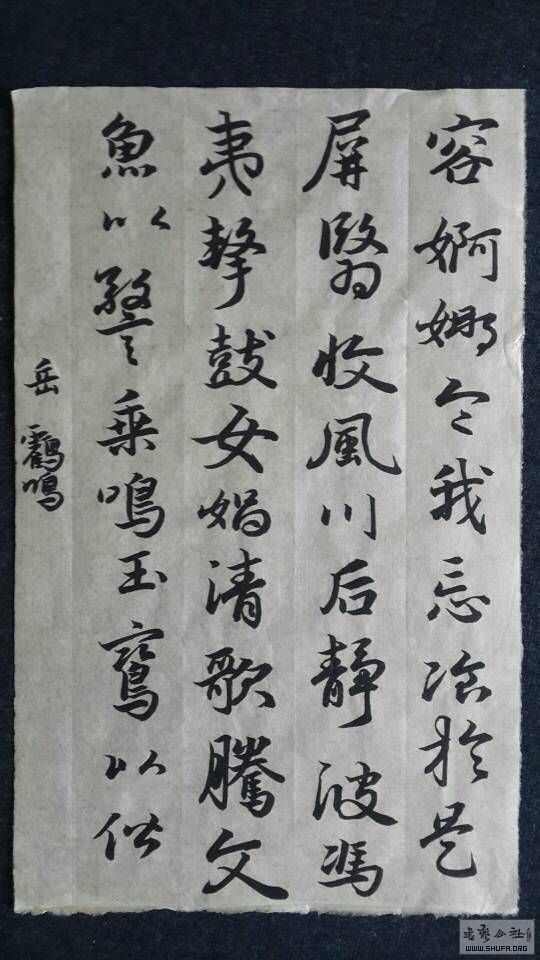 容婀娜令我忘飡於是
屏翳收風川后靜波馮
夷擊鼓女媧清歌騰文
魚以警乘鳴玉鸞以偕
岳靏鳴
書藝公社
WWW.SHUFA.ORG